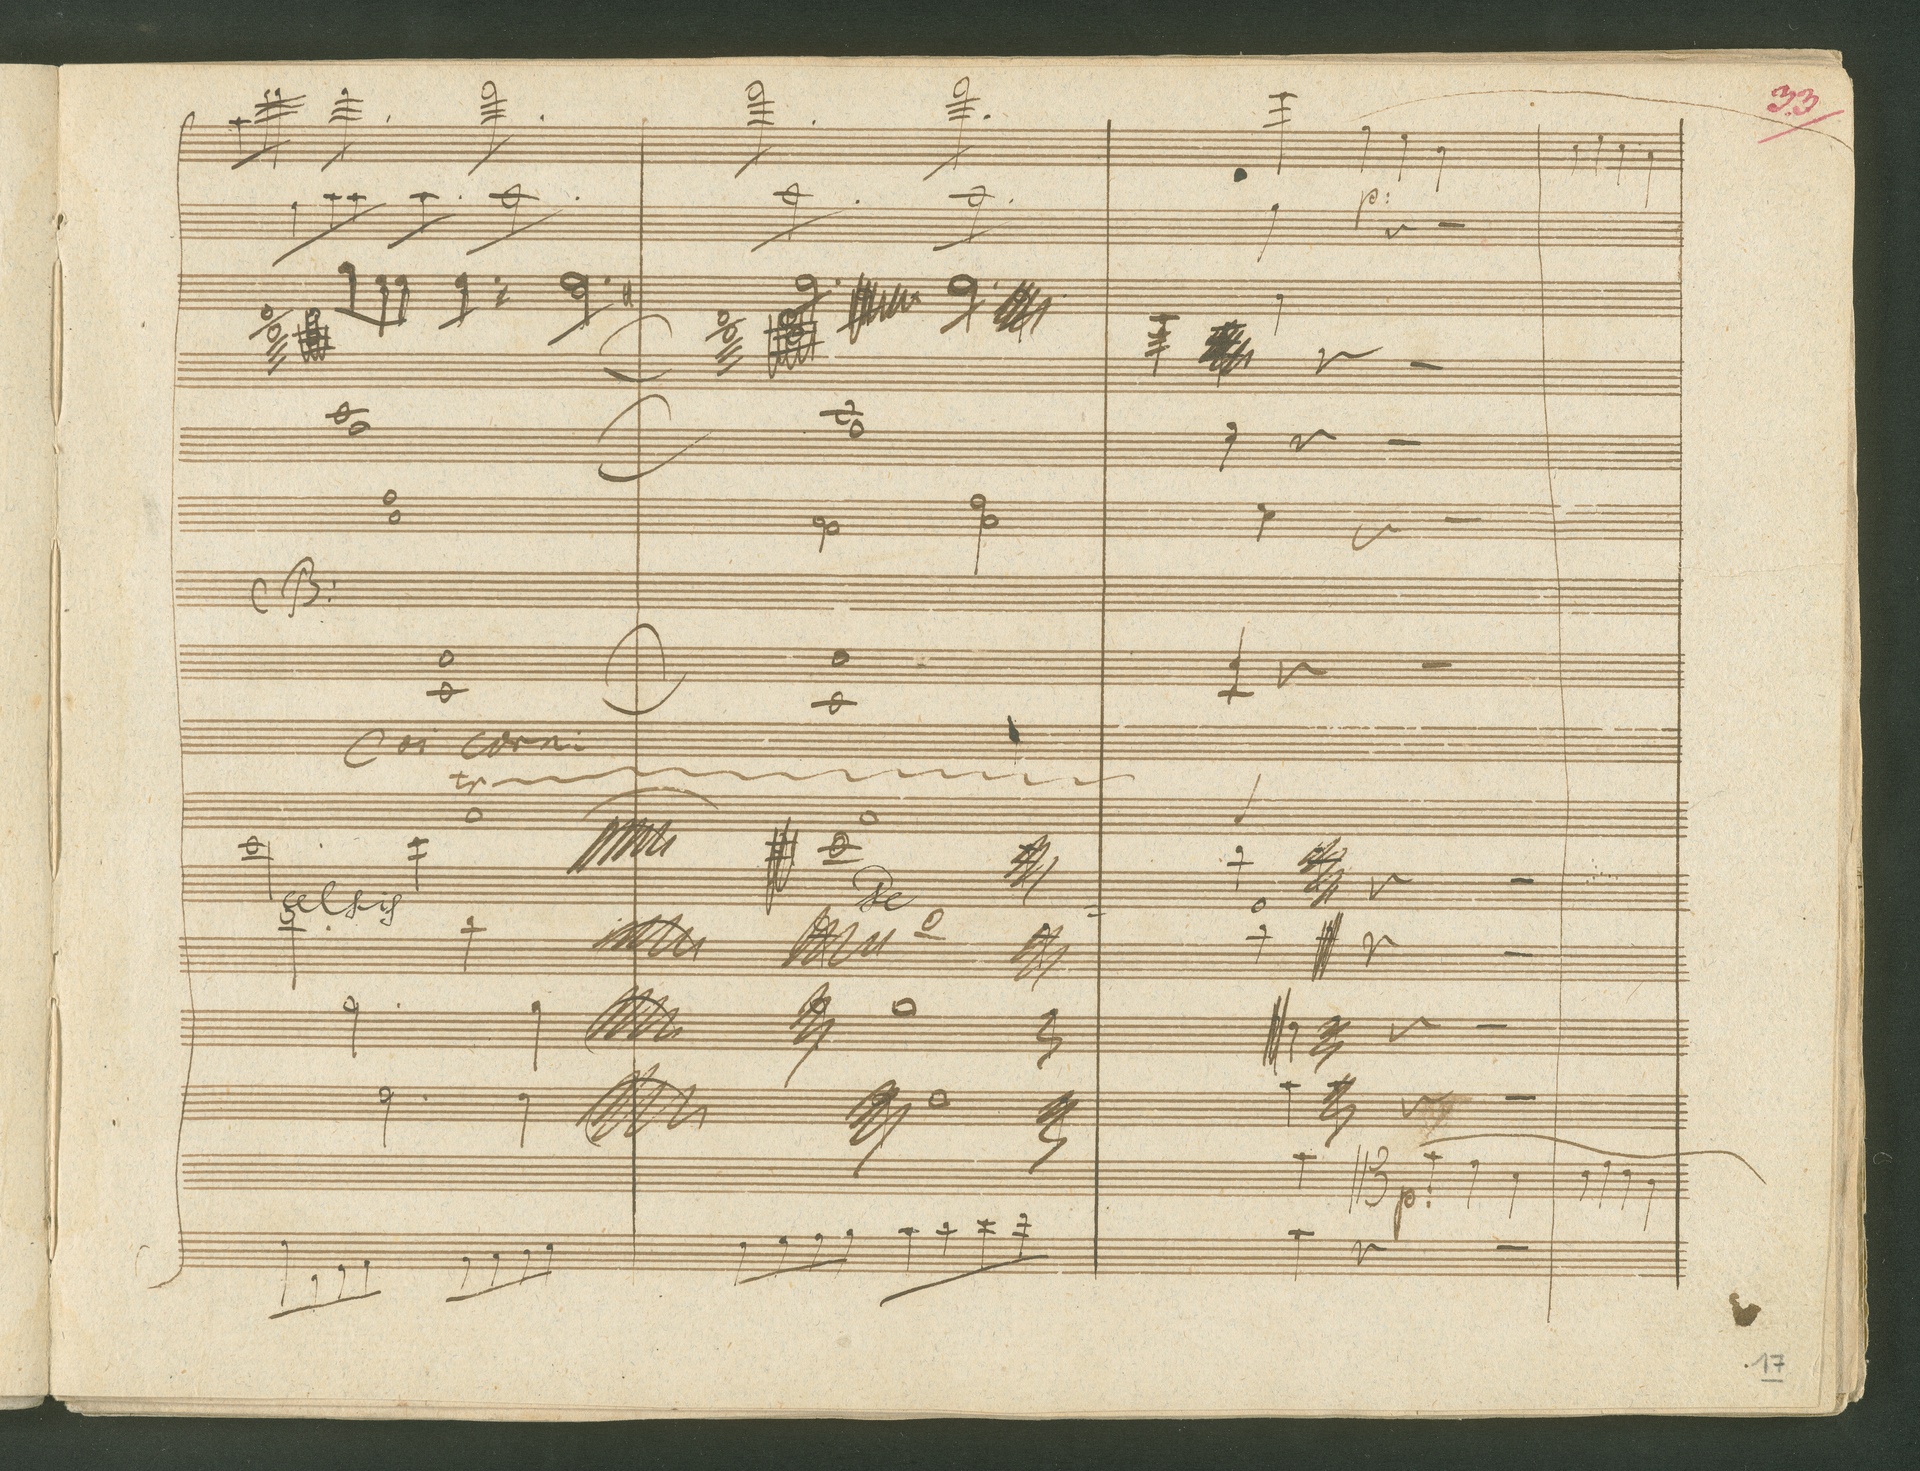 33
p:
C B:
Coi corni
tr
celsis
De
p:
17